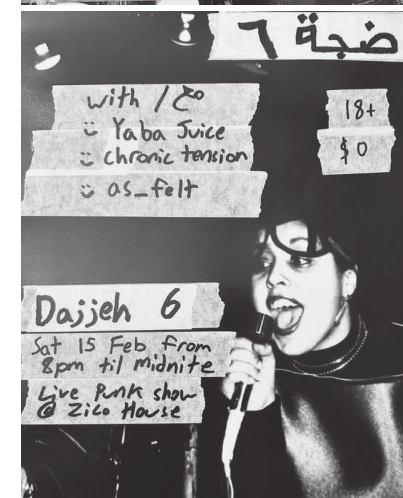 ضجة ٦
with / مع
ü Yaba Juice
ü chronic tension
ü as_felt
18+
$0
Dajjeh 6
Sat 15 Feb from
8pm til midnite
Live Punk show
@ Zico House